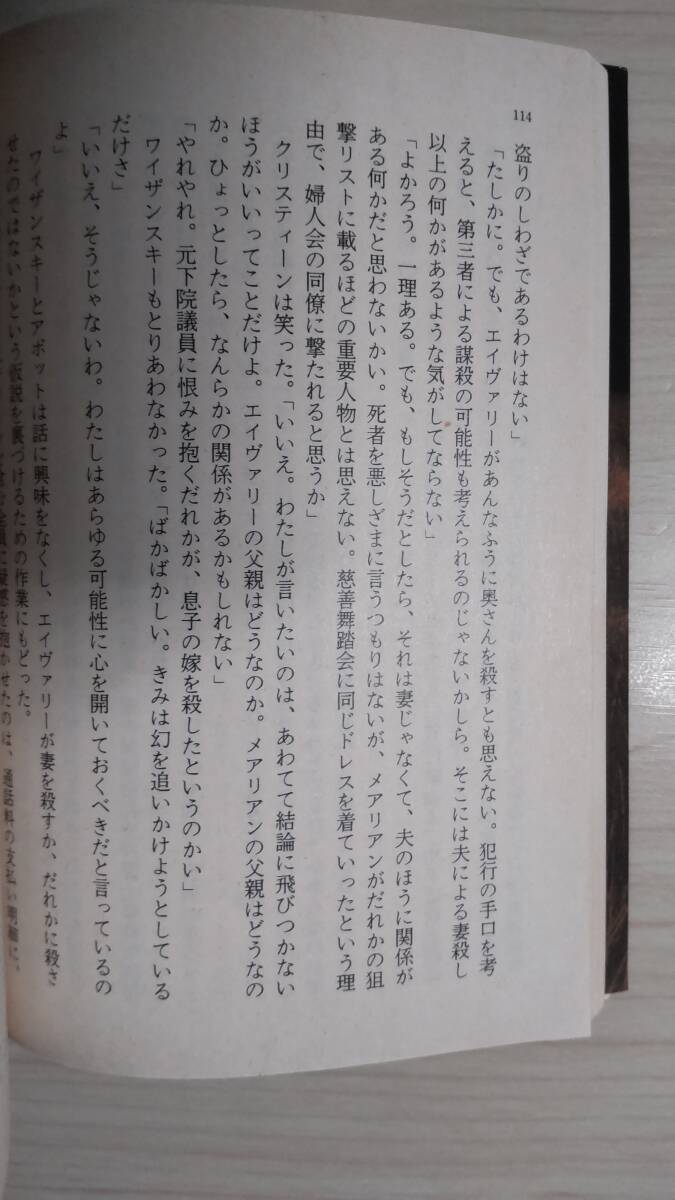 114
盗りのしわざであるわけはない」
「たしかに。でも、エイヴァリーがあんなふうに奥さんを殺すとも思えない。犯行の手口を考
えると、第三者による謀殺の可能性も考えられるのじゃないかしら。そこには夫による妻殺し
以上の何かがあるような気がしてならない」
「よかろう。一理ある。でも、もしそうだとしたら、それは妻じゃなくて、夫のほうに関係が
ある何かだと思わないかい。死者を悪しざまに言うつもりはないが、メアリアンがだれかの狙
撃リストに載るほどの重要人物とは思えない。慈善舞踏会に同じドレスを着ていったという理
由で、婦人会の同僚に撃たれると思うか」
クリスティーンは笑った。「いいえ。わたしが言いたいのは、あわてて結論に飛びつかない
ほうがいいってことだけよ。エイヴァリーの父親はどうなのか。メアリアンの父親はどうなの
か。ひょっとしたら、なんらかの関係があるかもしれない」
「やれやれ。元下院議員に恨みを抱くだれかが、息子の嫁を殺したというのかい」
ワイザンスキーもとりあわなかった。「ばかばかしい。きみは幻を追いかけようとしている
だけさ」
「いいえ、そうじゃないわ。わたしはあらゆる可能性に心を開いておくべきだと言っているの
よ」
ワイザンスキーとアボットは話に興味をなくし、エイヴァリーが妻を殺すか、だれかに殺さ
せたのではないかという仮説を裏づけるための作業にもどった。
に疑惑を抱かせたのは、通話料の支払い明細に、